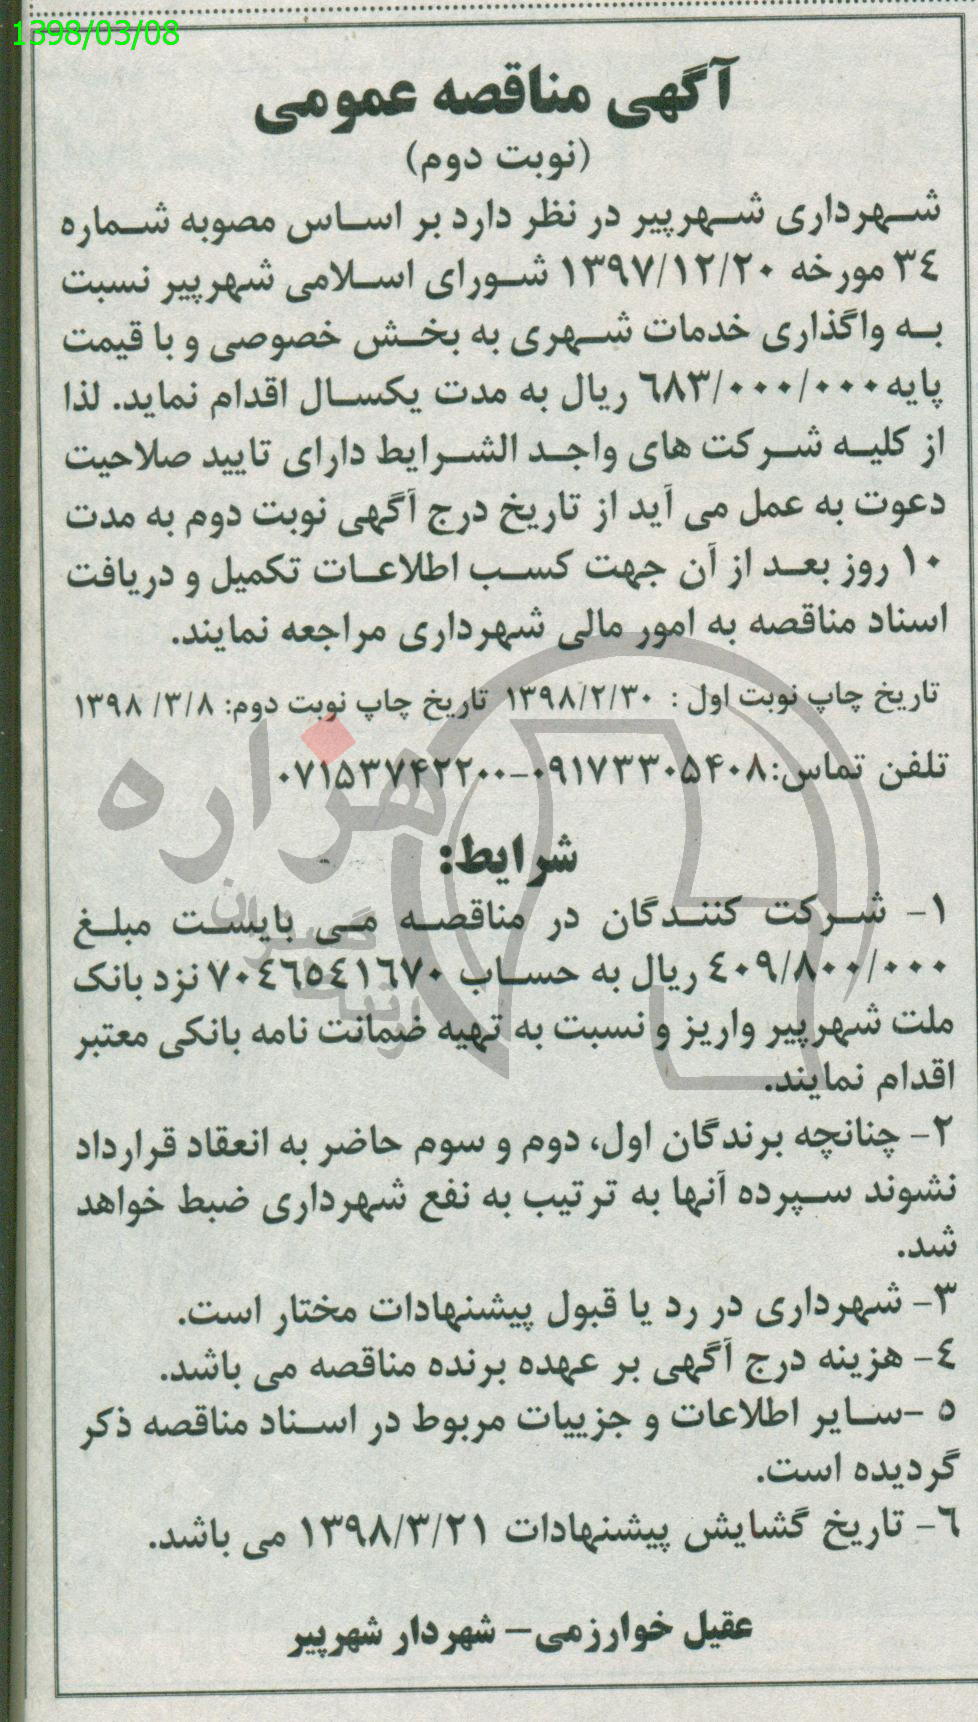 1398/03/08
آگهی مناقصه عمومی
(نوبت دوم)
شهرداری شهرپیر در نظر دارد بر اساس مصوبه شماره
٣٤ مورخه ١٣٩٧/١٢/٢٠ شورای اسلامی شهرپیر نسبت
به واگذاری خدمات شهری به بخش خصوصی و با قیمت
پایه ٦٨٣/٠٠٠/٠٠٠ ریال به مدت یکسال اقدام نماید. لذا
از کلیه شرکت های واجد الشرایط دارای تایید صلاحیت
دعوت به عمل می آید از تاریخ درج آگهی نوبت دوم به مدت
١٠ روز بعد از آن جهت کسب اطلاعات تکمیل و دریافت
اسناد مناقصه به امور مالی شهرداری مراجعه نمایند.
تاریخ چاپ نوبت اول : ١٣٩٨/٢/٣٠ تاریخ چاپ نوبت دوم: ١٣٩٨ /٣/٨
تلفن تماس:۰۹۱۷۳۳۰۵۴۰۸-۰۷۱۵۳۷۴۲۲۰۰
هزاره
شرایط:
١- شرکت کنندگان در مناقصه می بایست مبلغ
٤٠٩/٨٠٠/٠٠٠ ریال به حساب ٧٠٤٦٥٤١٦٧٠ نزد بانک
ملت شهرپیر واریز و نسبت به تهیه ضمانت نامه بانکی معتبر
اقدام نمایند.
٢- چنانچه برندگان اول، دوم و سوم حاضر به انعقاد قرارداد
نشوند سپرده آنها به ترتیب به نفع شهرداری ضبط خواهد
شد.
٣- شهرداری در رد یا قبول پیشنهادات مختار است.
٤- هزینه درج آگهی بر عهده برنده مناقصه می باشد.
٥ -سایر اطلاعات و جزییات مربوط در اسناد مناقصه ذکر
گردیده است.
٦- تاریخ گشایش پیشنهادات ١٣٩٨/٣/٢١ می باشد.
عقیل خوارزمی- شهردار شهرپیر